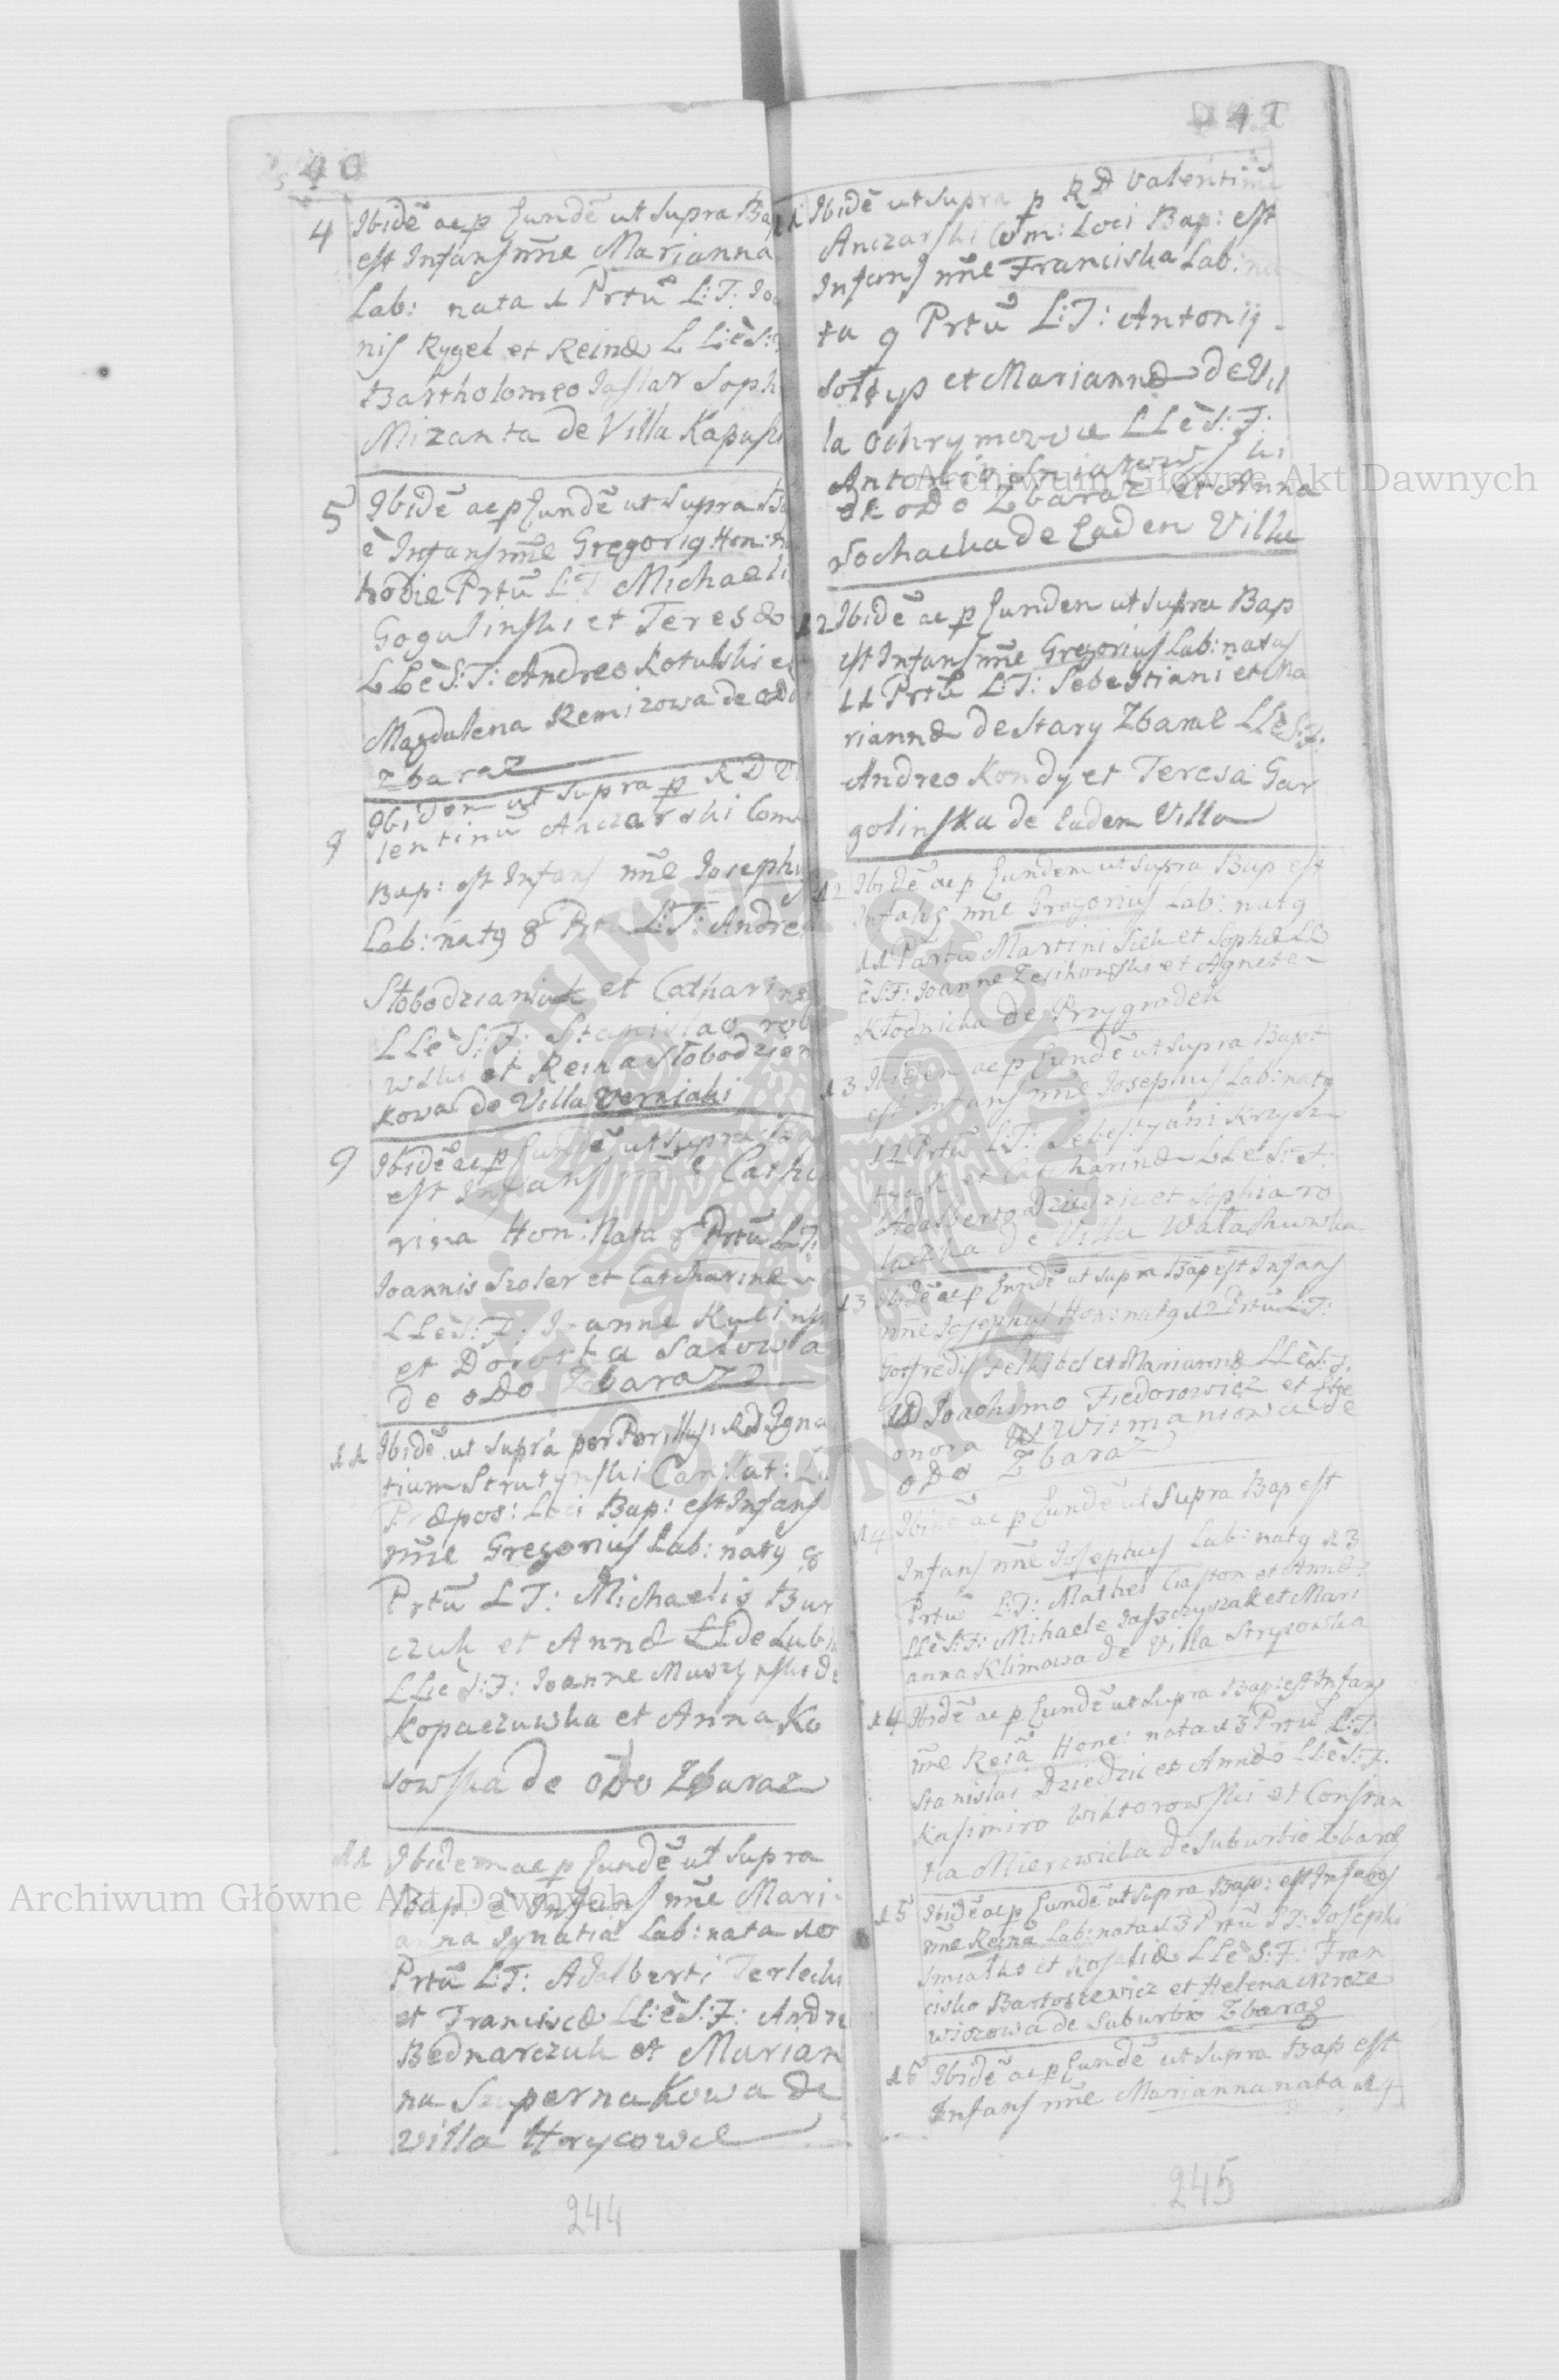 40
4 Ibidē ac p Eundē ut Supra Bap
est Infans nn̄e Marianna
Lab: nata 1 Prtū L:T: Joa
nis Rygel et Reinæ L L:è S:
Bartholomeo Joslar Soph
Mizanta de Villa Kapus
5 Ibidē ac p Eundē ut Supra Ba
è Infans nn̄e Gregoriq Hon: n
hodie Prtū L:T Michaeli
Gogulinski et Teresæ
L L è S:T: Andreo Kotulski e
Magdalena Remizowa de oDo
Zbaraz
9 Ibidem ut Supra p R D V
lentinū Anczarski Com
Bap: est Infans nn̄e Josephu
Lab: natq 8 Prtū L:T: Andre
Słobodzianuk et Catharinæ
L L:è S:F: Stanislao
et Reina Słobodzian
kowa de Villa Verniaki
9 Ibidē ac p Eundē ut Supra Bap
est Infans nn̄e Catha
rina Hon: Nata 8 Prtū L:T:
Joannis Szoler et Catharinæ
L L è S:F: Joanne Kulins
et Dorota Salowa
de oDo Zbaraz
11 Ibidē ut Supra per Perillus RD Igna
tium Strutynski Can: Lat:
Præpos: Loci Bap: est Infans
nn̄e Gregorius Lab: natq 8
Prtū L T: Michaelis Bur
czuk et Annæ LL de Lubi
L L è S:F: Joanne Muszynski de
Kopaczuwka et Anna Ko
sowska de oDo Zbaraz
11 Ibidem ac p Eundē ut Supra
Bap è Infans nn̄e Mari
anna Ignatia Lab: nata 10
Prtū L:T: Adalberti Terlecki
et Franciscæ L L:è S:F: Andre
Bednarczuk et Marian
na Szupernakowa de
villa Hrycowce
244
41
11 Ibidē ut Supra p R D Valentinū
Anczarski Com: Loci Bap: est
Infans nn̄e Franciska Lab: na
ta 9 Prtū L:T: Antonij
Sołtys et Mariannæ de Vil
la Ochrymowce L L è S:F:
Antonio
de oDo Zbaraz et Anna
Sochacka de Eaden Villa
12 Ibidē ac p Eunden ut Supra Bap
est Infans nn̄e Gregorius Lab: natus
11 Prtū L:T: Sebestiani et Ma
riannæ de Stary Zbaraz L L è S:F:
Andreo Kondy et Teresa Gar
golinska de Eadem Villa
12 Ibidē ac p Eundem ut Supra Bap est
Infans nn̄e Gregorius Lab: natq
11 Partū Martini Sick et Sophiæ L L
è S:F: Joanne Zesikowski et Agnete
Kłodnicka de Przygrodek
13 Ibidem ac p Eundē ut Supra Bapt
est Infans nn̄e Josephus Lab: natq
12 Prtū L:T: Sebestyani Krzysz
tyuk et Catharinæ L L è S:F:
Adalberto Dziedzic et Sophia To
laczka de Villa Wałachuwka
13 Ibidē ac p Eundē ut Supra Bap est Infans
nn̄e Josephus Hon: natq 12 Prtū L:T:
Gotfredij et Mariannæ L L è S:F:
Joachimo Fiedorowicz et Ele
onora Witmaniowa de
oDo Zbaraz
14 Ibidē ac p Eundē ut Supra Bap est
Infans nn̄e Josephus Lab: natq 13
Prtū L:T: Mathei Gaston et Annæ
L L è S:F: Mihaele Jaszczyszak et Mari
anna Klimowa de Villa Stryiowka
14 Ibidē ac p Eundē ut Supra Bap: est Infans
nn̄e Reiā Hone: nata 13 Prtū L:T:
Stanislai Dziedzic et Annæ L L è S:F.
Kasimiro Wiktorowski et Constan
tia Mierzwicka de Suburbio Zbaraz
15 Ibidē ac p Eundē ut Supra Bap: est Infans
nn̄e Reina Lab: nata 13 Prtū L T: Josephi
Smiałko et Rosaliæ L L è S:F: Fran
cisko Bartosiewicz et Helena Mroze
wiczowa de Suburbio Zbaraz
15 Ibidē ac p Eundē ut Supra Bap est
Infans nn̄e Marianna nata 14
245
Archiwum Główne Akt Dawnych
Archiwum Główne Akt Dawnych
ARCHIWUM GŁÓWNE AKT DAWNYCH